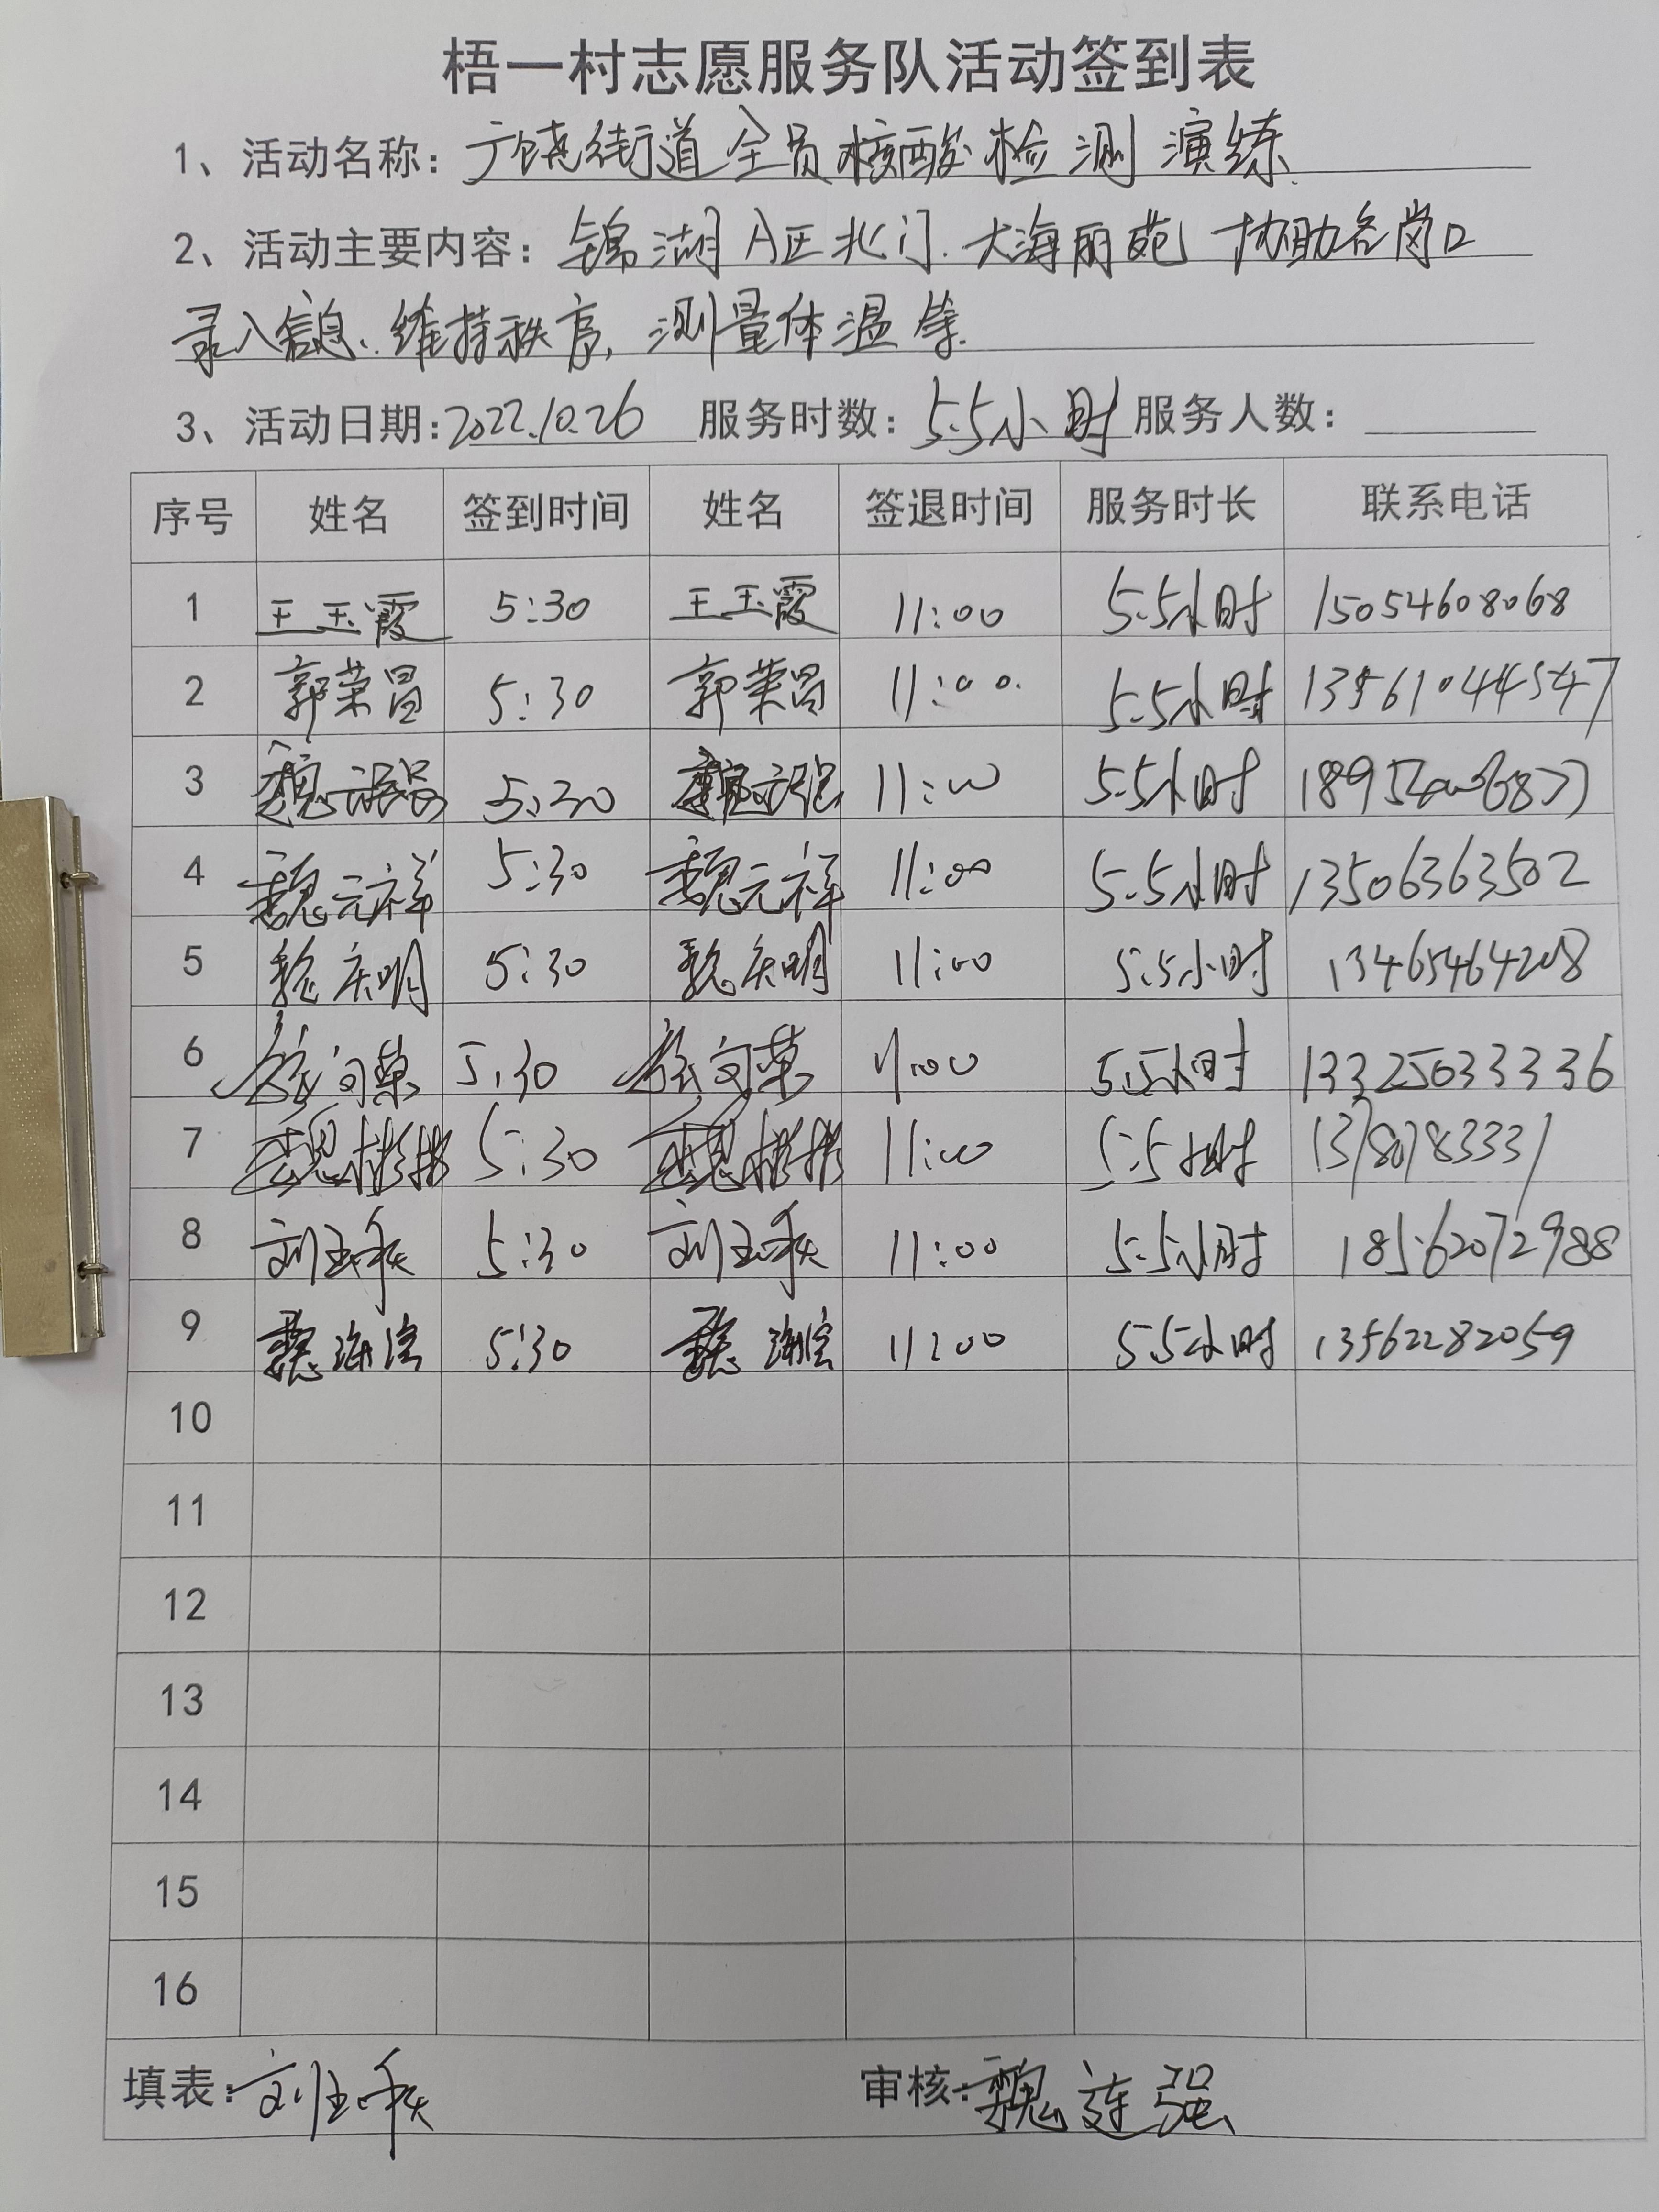 梧一村志愿服务队活动签到表
1、活动名称：广饶街道全员核酸检测演练.
2、活动主要内容：锦湖A区北门.大海丽苑 协助各岗口
录入信息、维持秩序,测量体温等.
3、活动日期：2022.10.26 服务时数：5.5小时 服务人数：
序号 姓名 签到时间 姓名 签退时间 服务时长 联系电话
1 王玉霞 5:30 王玉霞 11:00 5.5小时 15054608068
2 郭荣昌 5:30 郭荣昌 11:00. 5.5小时 13561044547
3 5:30 11:00 5.5小时
4 魏元祥 5:30 魏元祥 11:00 5.5小时 13506363502
5 魏庆明 5:30 魏庆明 11:00 5.5小时 13465464208
6 5:30 11:00 5.5小时 13325033336
7 魏彬彬 5:30 魏彬彬 11:00 5.5小时
8 刘玉秋 5:30 刘玉秋 11:00 5.5小时 18562072988
9 魏海滨 5:30 魏海滨 11:00 5.5小时 13562282059
10
11
12
13
14
15
16
填表：刘玉秋 审核：魏连强